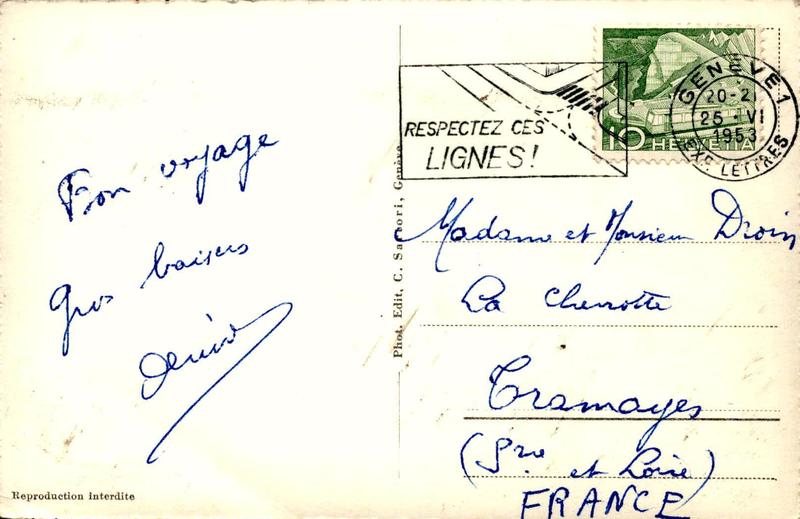 Bon voyage
Gros baisers
Denise
Reproduction interdite
Phot. Edit. C. Sartori, Genève
RESPECTEZ CES
LIGNES!
10 HELVETIA
GENÈVE 1
20-21
25 VI
1953
EXP. LETTRES
Madame et Monsieur Droin
La Chevrotte
Tramayes
(Sne et Loire)
FRANCE